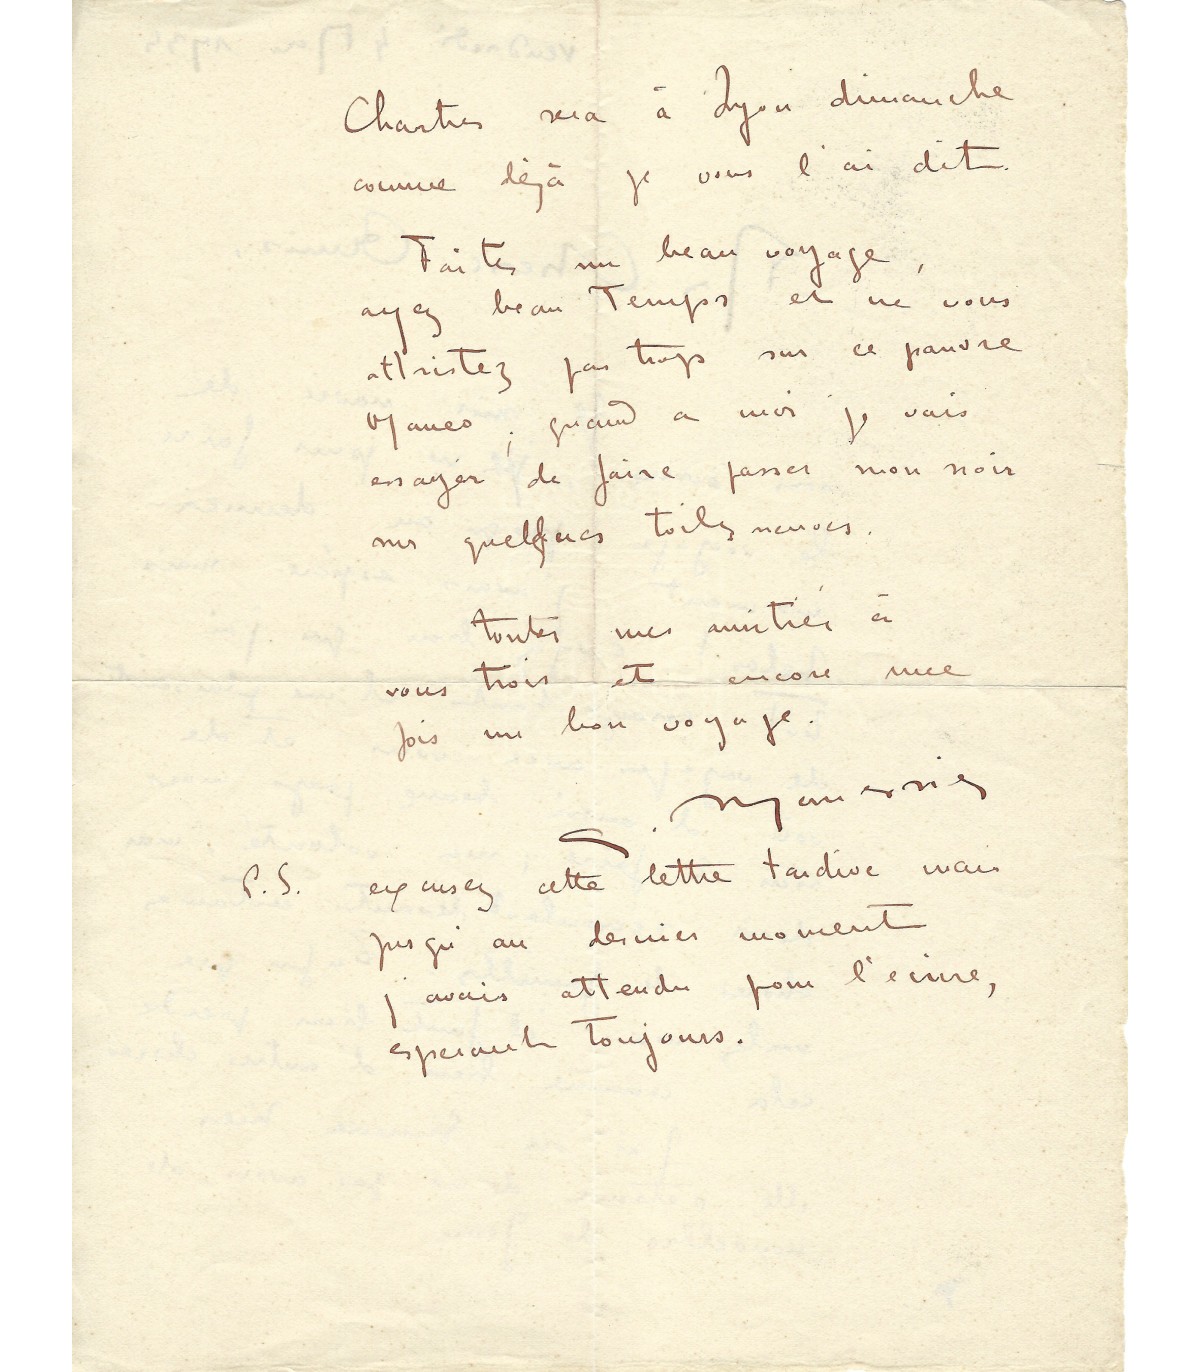 Chartres sera à Lyon dimanche
comme déjà je vous l'ai dit.
Faites un beau voyage,
ayez beau Temps et ne vous
attristez pas trop sur ce pauvre
Maneo, quand a moi je vais
essayer de faire passer mon noir
sur quelques toiles neuves.
toutes mes amitiés à
vous trois et encore une
fois un bon voyage.
Manessier
P.S. excusez cette lettre tardive mais
jusqu'au dernier moment
j'avais attendu pour l'ecrire,
esperant Toujours.